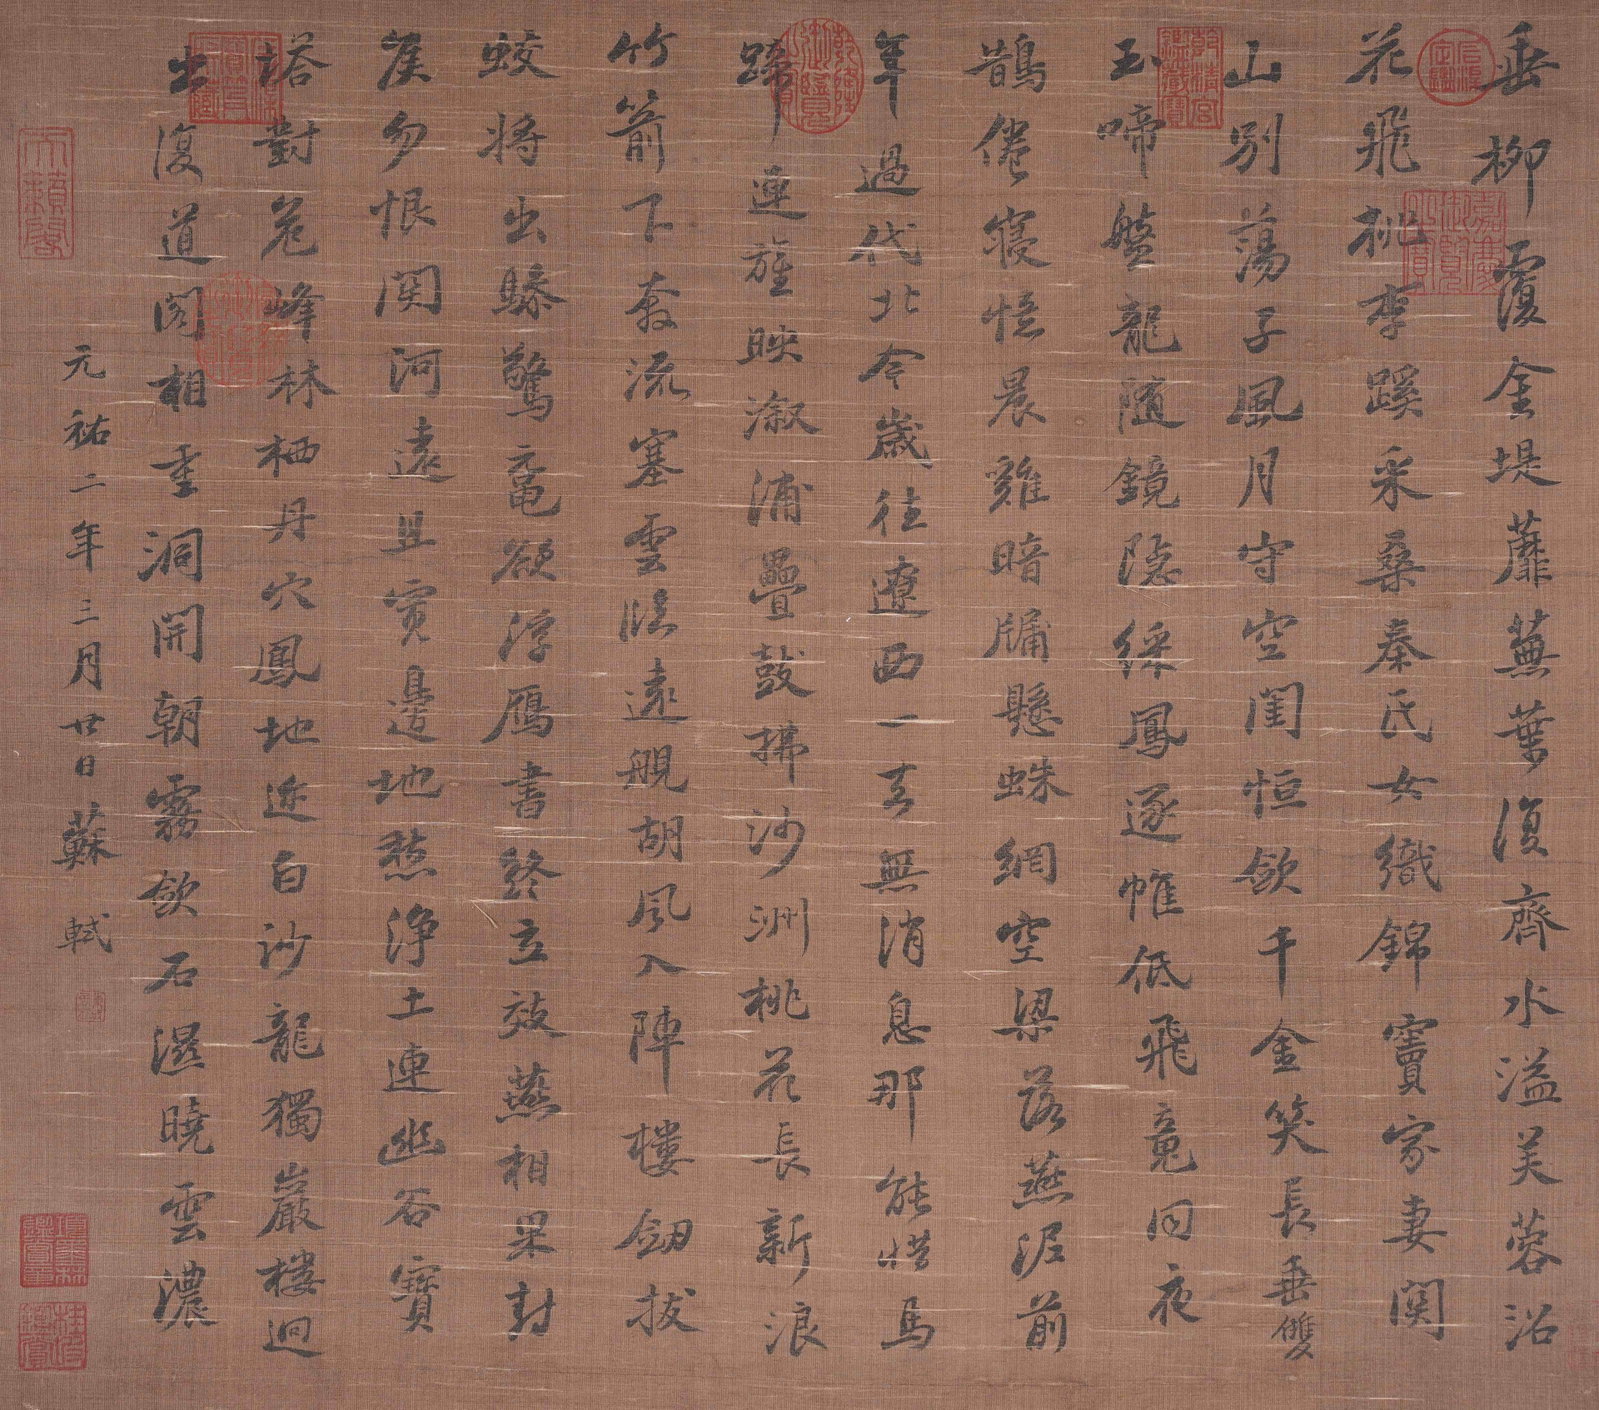 垂柳覆金堤蘼蕪葉復齊水溢芙蓉沼
花飛桃李蹊采桑秦氏女織錦竇家妻関
山別蕩子風月守空閨恒斂千金笑長垂雙
玉啼盤龍隨鏡隱綵鳳逐帷低飛竟同夜
鵲倦寢憶晨雞暗牖懸蛛網空梁落燕泥前
年過代北今歲往遼西一去無消息那能惜馬
蹄連旌映溆浦疊鼓拂沙洲桃花長新浪
竹箭下奔流塞雲臨遠艦胡風入陣樓劒拔
蛟將出驂驚黿欲浮鴈書終立效燕相果封
侯勿恨関河遠且寬邊地愁淨土連幽谷寶
塔對危峰林栖丹穴鳳地近白沙龍獨巖樓迥
出復道閣相重洞開朝霧斂石濕曉雲濃
元祐二年三月廿日蘇軾
嘉慶御覽之寶
乾清宮鑑藏寶
乾隆御覽之寶
天籟閣